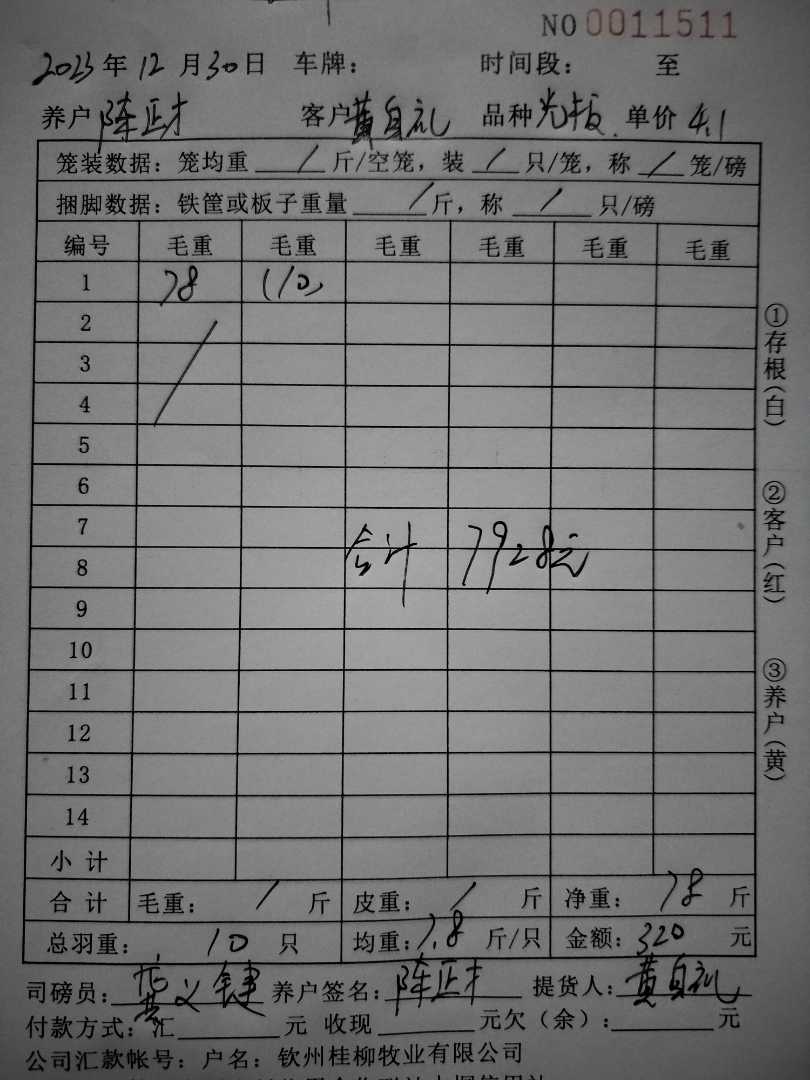 NO 0011511
2023年12月30日 车牌: 时间段: 至
养户 陈正才 客户 黄自礼 品种 光板 单价 4.1
笼装数据: 笼均重 / 斤/空笼, 装 / 只/笼, 称 / 笼/磅
捆脚数据: 铁筐或板子重量 / 斤, 称 / 只/磅
编号 毛重 毛重 毛重 毛重 毛重 毛重
1 78 (10)
2
3
4
5
6
7
合计 7928元
8
9
10
11
12
13
14
小计
合计 毛重: / 斤 皮重: / 斤 净重: 78 斤
总羽重: 10 只 均重: 7.8 斤/只 金额: 320 元
司磅员: 义键 养户签名: 陈正才 提货人: 黄自礼
付款方式: 汇 元 收现 元欠(余): 元
公司汇款帐号: 户名: 钦州桂柳牧业有限公司
①存根(白)
②客户(红)
③养户(黄)